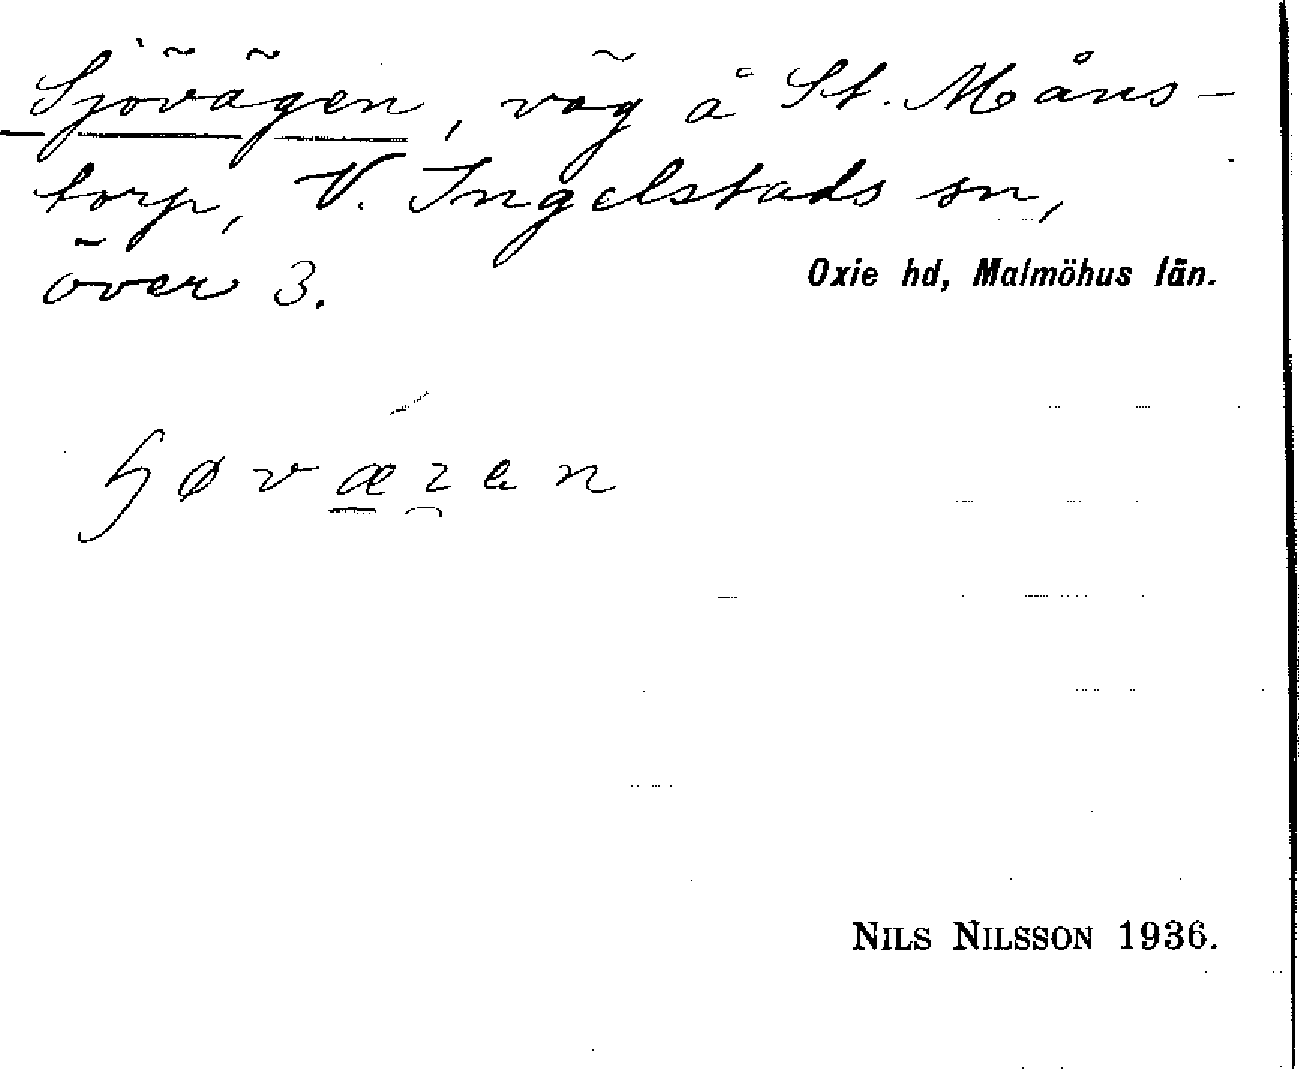 Sjövägen, väg å St. Måns-
torp, V. Ingelstads sn,
över 3.
Oxie hd, Malmöhus län.
NILS NILSSON 1936.